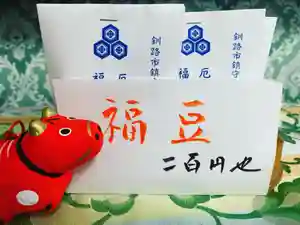 釧路市鎮守
厄
福
釧路市鎮守
厄
福
福豆
二百円也